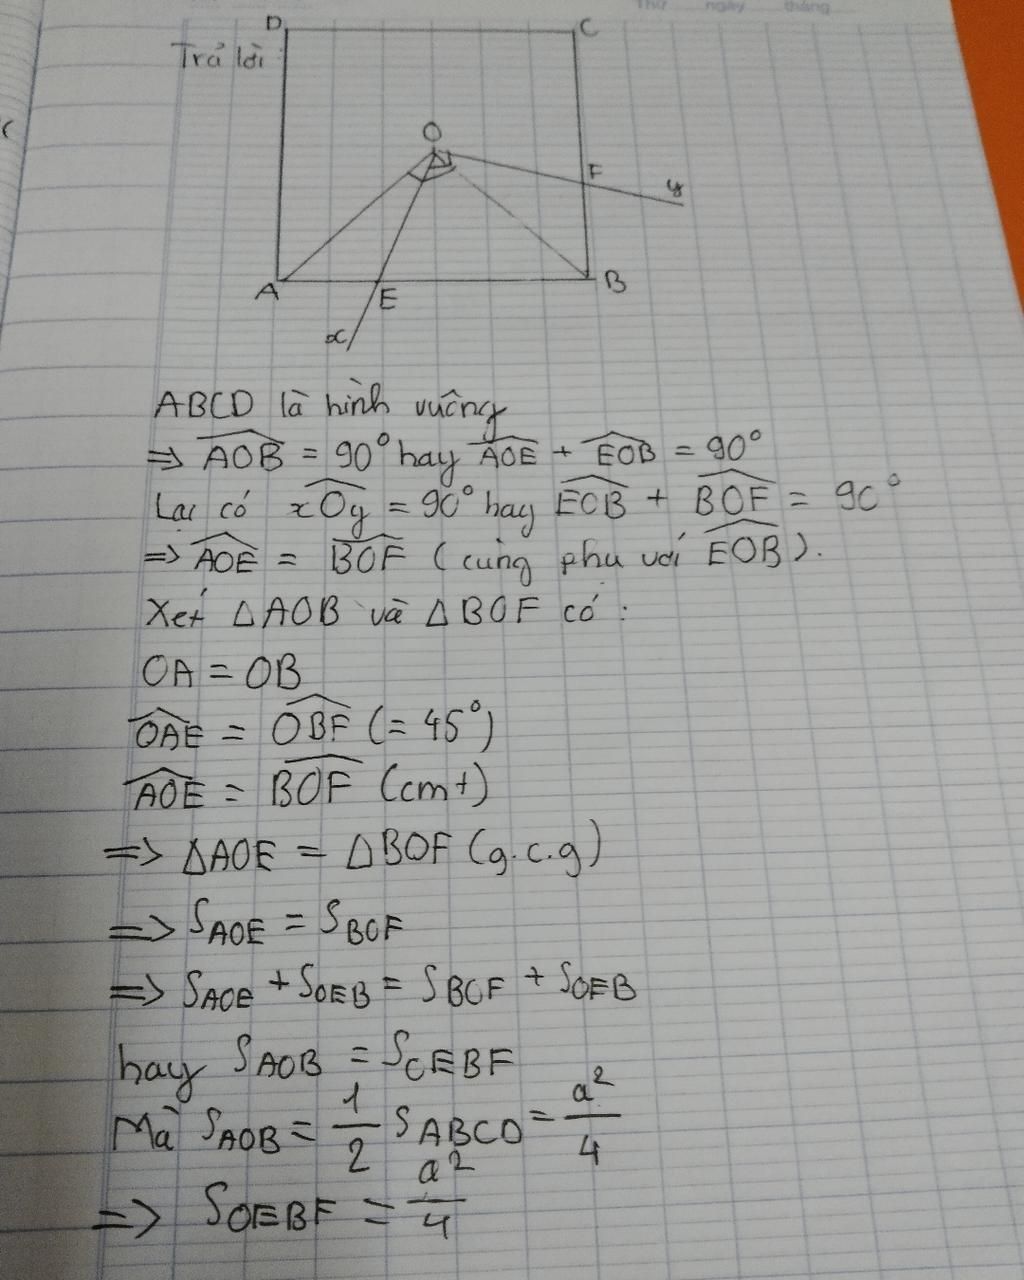 Thứ ngày tháng
D C
Trả lời
O
F
y
A E B
x
ABCD là hình vuông
=> $\widehat{AOB}$ = 90° hay $\widehat{AOE}$ + $\widehat{EOB}$ = 90°
Lại có $\widehat{xOy}$ = 90° hay $\widehat{EOB}$ + $\widehat{BOF}$ = 90°
=> $\widehat{AOE}$ = $\widehat{BOF}$ (cùng phụ với $\widehat{EOB}$).
Xét ΔAOB và ΔBOF có :
OA = OB
$\widehat{OAE}$ = $\widehat{OBF}$ (= 45°)
$\widehat{AOE}$ = $\widehat{BOF}$ (cmt)
=> ΔAOE = ΔBOF (g.c.g)
=> $S_{AOE}$ = $S_{BOF}$
=> $S_{AOE}$ + $S_{OEB}$ = $S_{BOF}$ + $S_{OEB}$
hay $S_{AOB}$ = $S_{OEBF}$
Mà $S_{AOB}$ = $\frac{1}{2}$ $S_{ABCD}$ = $\frac{a^2}{4}$
=> $S_{OEBF}$ = $\frac{a^2}{4}$